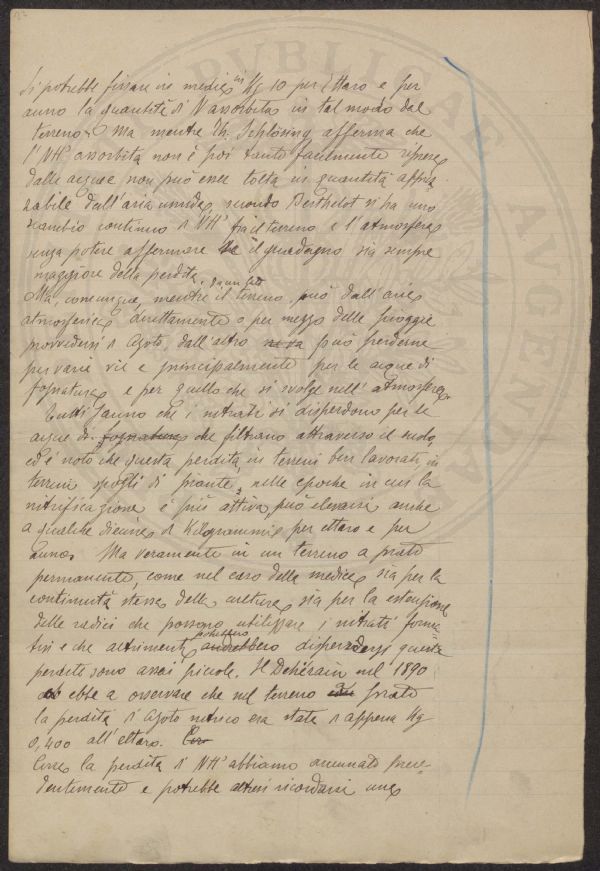 Si potrebbe fissare in media in Kg 10 per Ettaro e per
anno la quantità di N assorbita in tal modo dal
terreno. Ma mentre Th. Schlösing afferma che
l'NH³ assorbita non è poi tanto facilmente ripresa
dalle acque e non può esser tolta in quantità apprez-
zabile dall'aria umida, secondo Berthelot si ha uno
scambio continuo d'NH³ fra il terreno e l'atmosfera
senza potere affermare se il guadagno sia sempre
maggiore della perdita.
Ma, comunque, mentre il terreno, da un lato può dall'aria
atmosferica direttamente o per mezzo delle pioggie
provvedersi d'Azoto, dall'altro ne va può perderne
per varie vie e principalmente per le acque di
fognatura, e per quello che si svolge nell'atmosfera.
Tutti sanno che i nitrati si disperdono per le
acque di fognatura che filtrano attraverso il suolo
ed è noto che questa perdita in terreni ben lavorati, in
terreni spogli di piante, nelle epoche in cui la
nitrificazione è più attiva, può elevarsi anche
a qualche diecina di Kilogrammi per ettaro e per
anno. Ma veramente in un terreno a prato
permanente, come nel caso della medica, sia per la
continuità stessa della coltura, sia per la estensione
delle radici che possono utilizzare i nitrati forma-
tisi e che altrimenti andrebbero potrebbero disperdersi queste
perdite sono assai piccole. Il Dehérain nel 1890
ebbe a osservare che nel terreno a prato
la perdita d'Azoto nitrico era stata d'appena Kg
0,400 all'ettaro. Circ
Circa la perdita d'NH³ abbiamo accennato prece-
dentemente e potrebbe altresì ricordarsi una